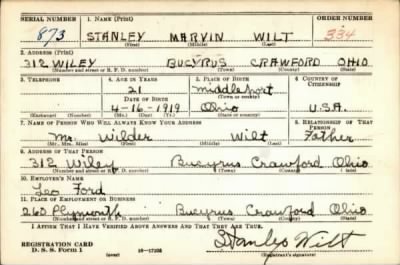 SERIAL NUMBER 1. NAME (Print) ORDER NUMBER
873 STANLEY MARVIN WILT 334
(First) (Middle) (Last)
2. ADDRESS (Print)
312 WILEY BUCYRUS CRAWFORD OHIO
(Number and street or R. F. D. number) (Town) (County) (State)
3. TELEPHONE 4. AGE IN YEARS 5. PLACE OF BIRTH 6. COUNTRY OF CITIZENSHIP
21 Middleport
DATE OF BIRTH (Town or county)
4-16-1919 Ohio U.S.A.
(Exchange) (Number) (Mo.) (Day) (Yr.) (State or country)
7. NAME OF PERSON WHO WILL ALWAYS KNOW YOUR ADDRESS 8. RELATIONSHIP OF THAT PERSON
Mr. Wilder Wilt Father
(Mr., Mrs., Miss) (First) (Middle) (Last)
9. ADDRESS OF THAT PERSON
312 Wiley Bucyrus Crawford Ohio
(Number and street or R. F. D. number) (Town) (County) (State)
10. EMPLOYER'S NAME
Leo Ford
11. PLACE OF EMPLOYMENT OR BUSINESS
260 Plymouth Bucyrus Crawford Ohio
(Number and street or R. F. D. number) (Town) (County) (State)
I AFFIRM THAT I HAVE VERIFIED ABOVE ANSWERS AND THAT THEY ARE TRUE.
REGISTRATION CARD
D. S. S. Form 1 (over) 16-17105 Stanley Wilt
(Registrant's signature)